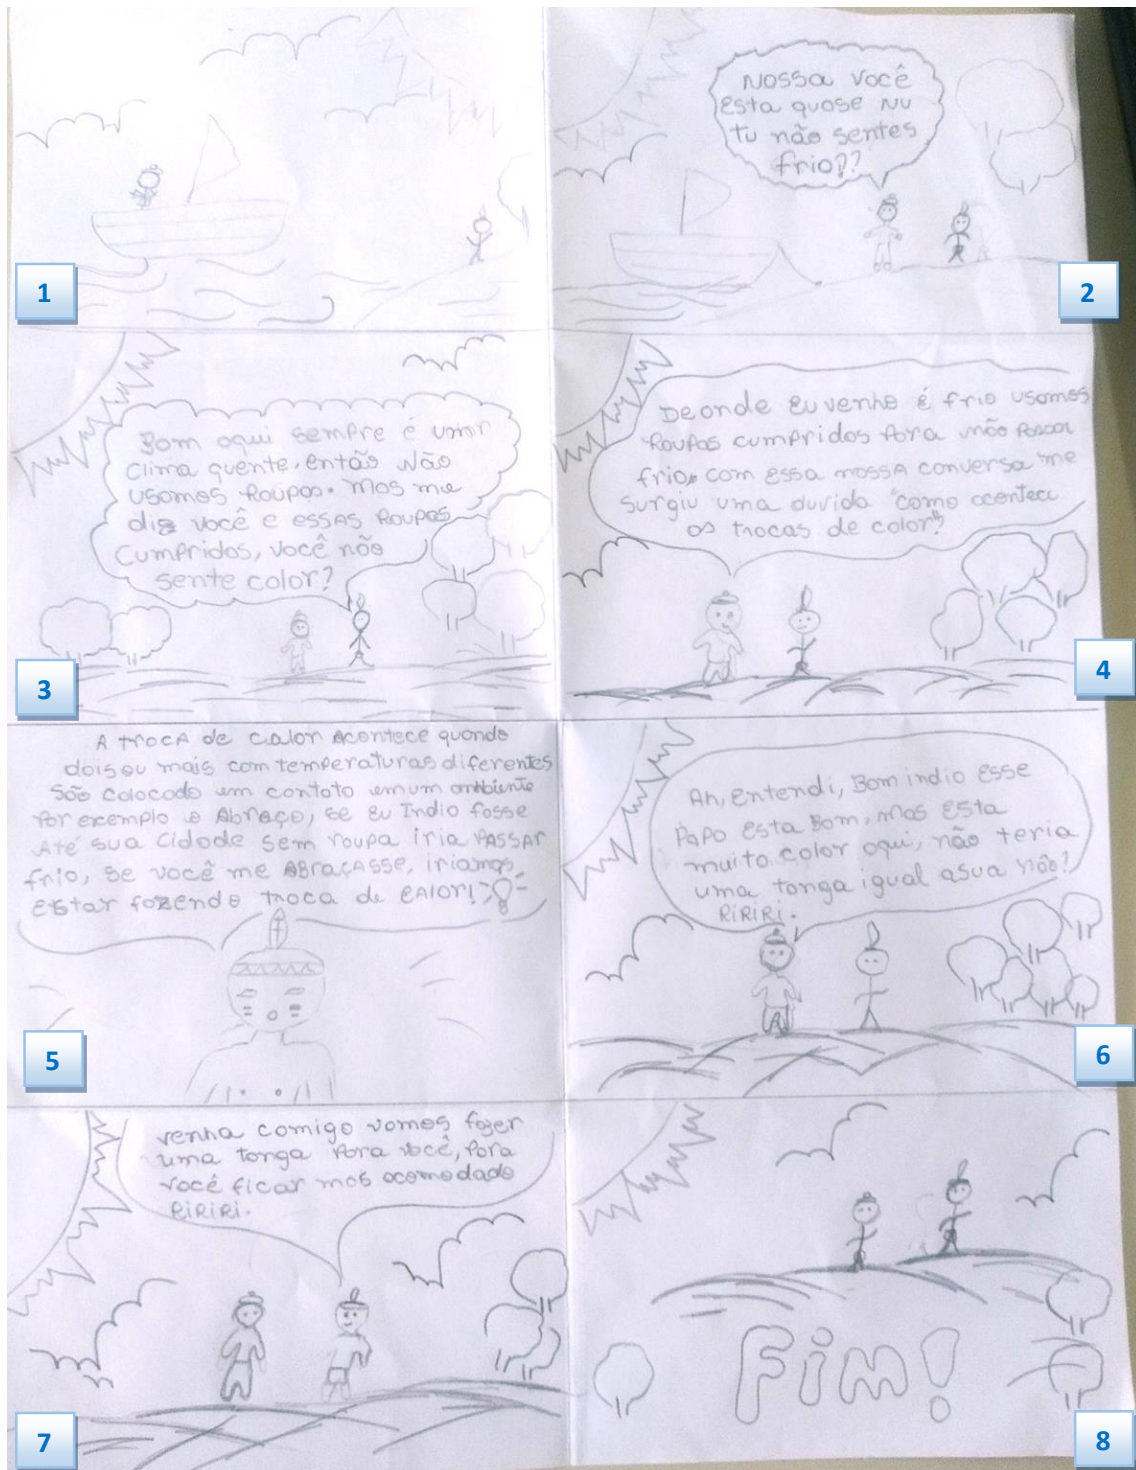 1
Nossa você
esta quase nu
tu não sentes
frio??
2
Bom aqui sempre é umr
clima quente, então não
usamos roupas. Mas me
diz você e essas roupas
cumpridas, você não
sente calor?
3
De onde eu venho é frio usamos
roupas cumpridas para não passar
frio, com essa nossa conversa me
surgiu uma duvida "como acontece
as trocas de calor"?
4
A troca de calor acontece quando
dois ou mais com temperaturas diferentes
são colocado em contato em um ambiente
por exemplo o abraço, se eu Indio fosse
até sua cidade sem roupa iria passar
frio, se você me abraçasse, iriamos
estar fazendo troca de calor!
5
Ah, entendi, Bom indio esse
papo esta bom, mas esta
muito calor aqui, não teria
uma tonga igual asua não?
RiRiRi.
6
venha comigo vamos fazer
uma tonga para você, para
você ficar mas acomodado
RiRiRi.
7
Fim!
8